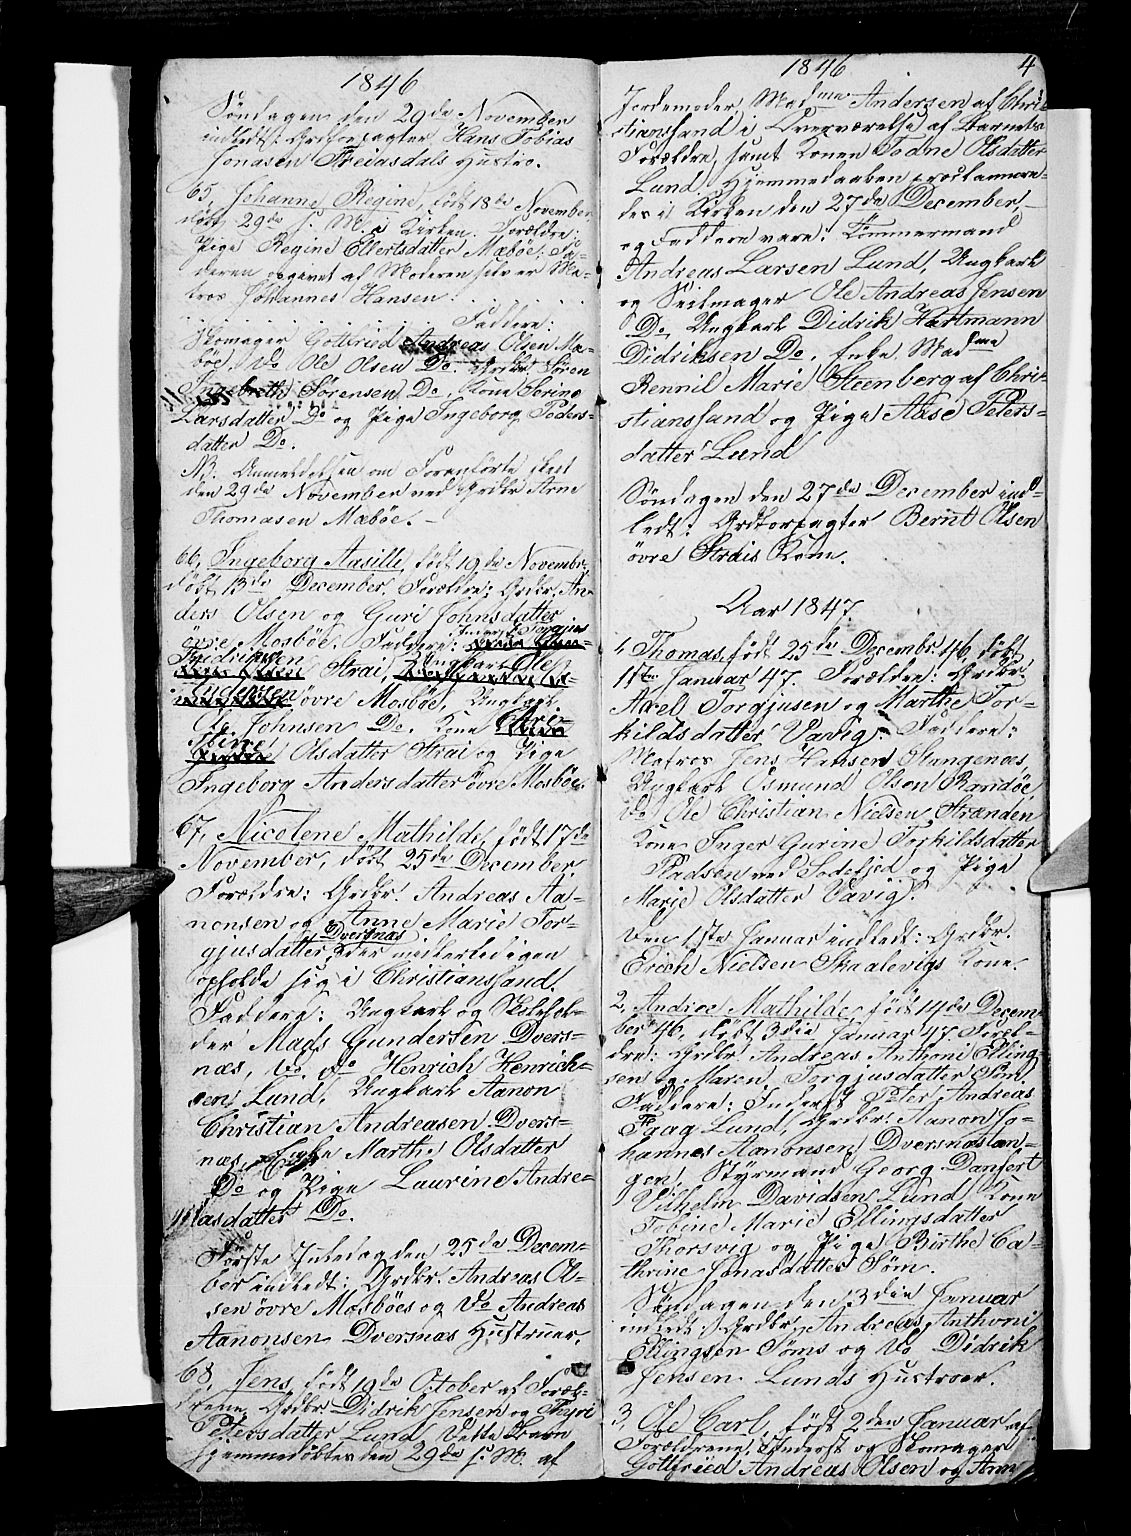 1846
Søndagen den 29de November
indledt: Grdforpagter Hans Tobias
Jonasen Fredasdals Hustro.
65, Johanne Regine, født 18de November
døbt 29de s. M. i Kirken. Forældre:
Pige Regine Ellertsdatter Mæbøe; Fa-
deren opgivet af Moderen selv er Ma-
tros Johannes Hansen.
Faddere:
Skomager Gottfried Andreas Olsen Mæ-
bøe, Do Ole Olsen Do. Grdbr Søren
Ingebreth Sørensen Do, Kone Serine
Larsdatter Do og Pige Ingeborg Peders-
datter Do.
NB. Anmeldelsen om Foranførte skeet
den 29de November ved Grdbr Arne
Thomasen Mæbøe.
66, Ingeborg Aasille, født 19de Novembr,
døbt 13de December. Forældre: Grdbr. An-
ders Olsen og Guri Johnsdatter
øvre Mosbøe. Faddere: Inderst Torgjus
Fredriksen Strai, Ungkarl Ole
Andersen øvre Mosbøe, Ungkarl
Ole Johnsen Do. Kone
Stine Olsdatter Strai og Pige
Ingeborg Andersdatter øvre Mosbøe.
67, Nicolene Mathilde, født 17de
November, døbt 25de December.
Forældre: Grdbr. Andreas Aa-
nonsen og Anne Marie Tor-
gjusdatter Dversnæs, der midlertidigen
opholde sig i Christianssand.
Faddere: Ungkarl og Skolehol-
der Mads Gundersen Dvers-
næs, Do Do Henrich Henrich-
sen Lund, Ungkarl Aanon
Christian Andreasen Dvers-
næs, Enke Marthe Olsdatter
Do og Pige Laurine Andre-
asdatter Do.
Første Juledag den 25de Decem-
ber indledt: Grdbr. Andreas Ol-
sen øvre Mosbøes og Do Andreas
Aanonsen Dversnæs Hustruer.
68, Jens, født 19de October af Foræl-
drene Grdbr. Didrik Jensen og Thyri
Petersdatter Lund. Dette Barn
hjemmedøbtes den 29de s. M. af
1846 4
Jordemoder Madme Andersen af Chri-
stianssand i Overværelse af Barnets
Forældre, samt Konen Todne Olsdatter
Lund. Hjemmedaaben proclamere-
des i Kirken den 27de December,
og Faddere vare: Tømmermand
Andreas Larsen Lund, Ungkarl
og Seilmager Ole Andreas Jensen
Do, Ungkarl Didrik Hartmann
Didriksen Do. Enke Madme
Rennil Marie Steenberg af Chri-
stianssand og Pige Aase Peters-
datter Lund
Søndagen den 27de December ind-
ledt: Grdforpagter Bernt Olsen
øvre Strais Kone.
Aar 1847.
1, Thomas, født 25de Decembr 46, døbt
1ste Januar 47. Forældre: Grdbr.
Axel Torgjusen og Marthe Tor-
kildsdatter Vavig. Faddere:
Matros Jens Hansen Stangenæs,
Ungkarl Osmund Olsen Randøe
Do Ole Christian Nielsen Stranden
Kone Inger Gurine Torkildsdatter
Pladsen ved Todefjed og Pige
Marje Olsdatter Vavig.
Den 1ste Januar indledt: Grdbr.
Erich Nielsen Skaalevigs Kone.
2, Andrœ Mathilde, født 14de Decem-
ber 46, døbt 3die Januar 47. Foræl-
dre: Grdbr. Andreas Anthoni Elling-
sen og Maren Torgjusdatter Søm.
Faddere: Inderst Peter Andreas
Faag Lund, Grdbr. Aanon Jo-
hannes Aanonsen Dversnæstan-
gen, Styrmand Georg Danfert
Vilhelm Davidsen Lund, Kone
Tobine Marie Ellingsdatter
Thorsvig og Pige Birthe Ca-
thrine Jonasdatter Søm.
Søndagen den 3die Januar
indledt: Grdbr. Andreas Anthoni
Ellingsen Søms og Do Didrik
Jensen Lunds Hustroer.
3, Ole Carl, født 2den Januar af
Forældrene, Inderst og Skomager
Gottfried Andreas Olsen og Ann